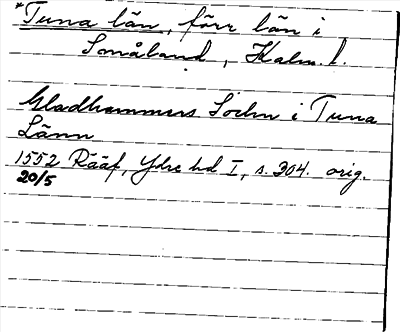 *Tuna län, förr län i
Småland, Kalm. l.
Gladhammars Sochn i Tuna
Länn
1552 Rääf, Ydre hd I, s. 304. orig.
20/5